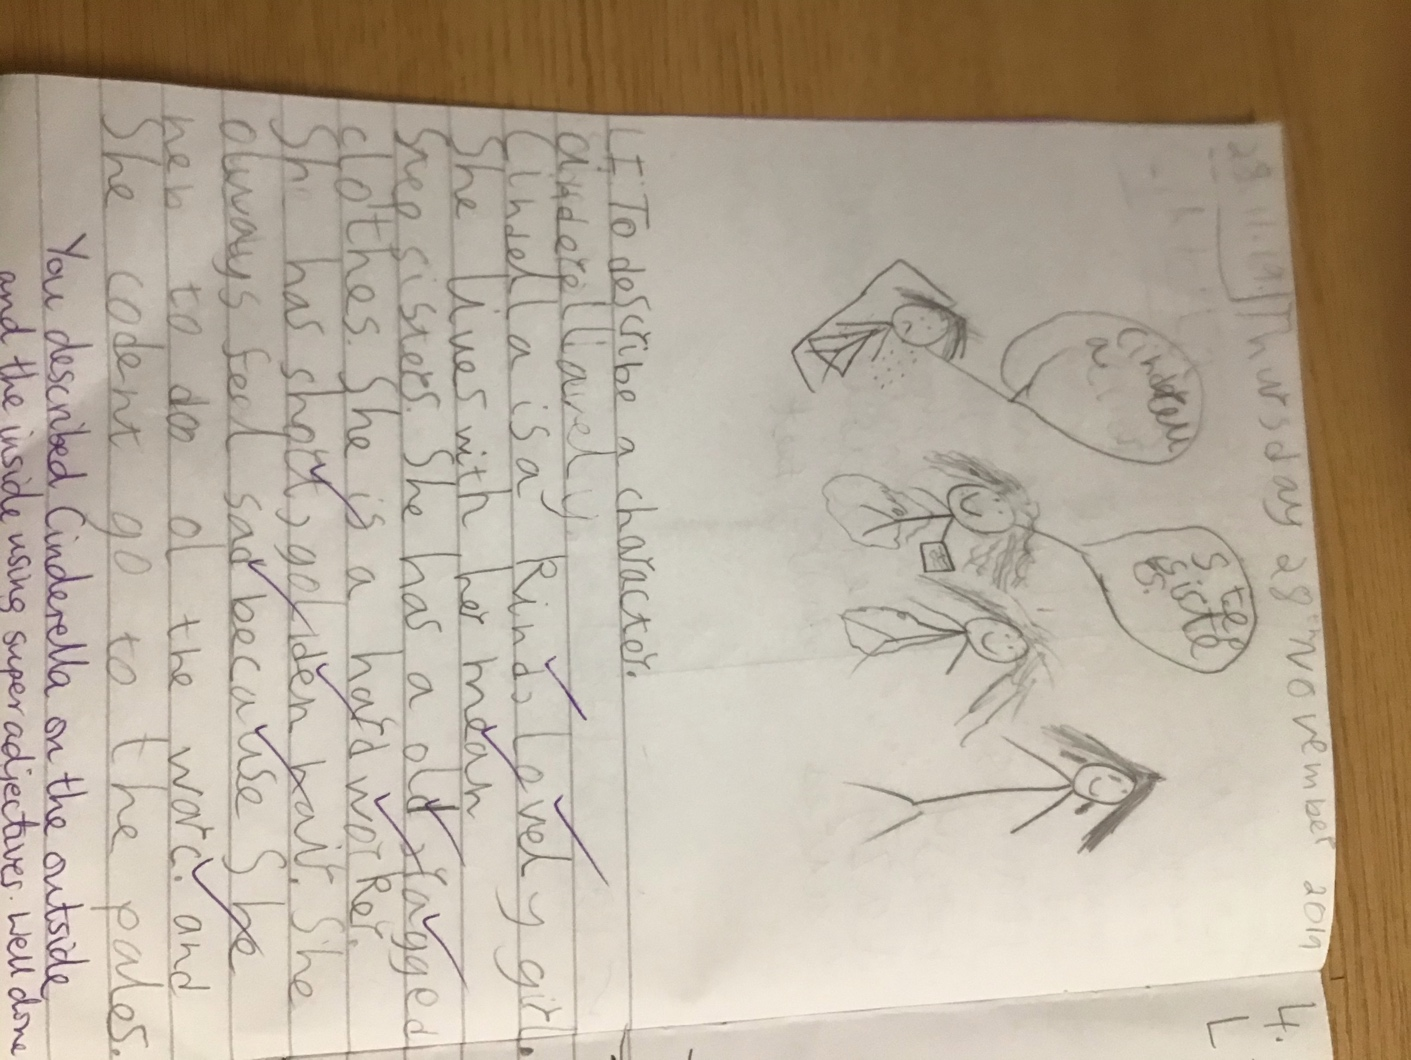 28.11.19 Thursday 28th november 2019
Cinderell
a
Step
Siste
rs.
LI To describe a character.
Cinderella is a Kind, Lovely girl.
She lives with her mean
Step sisters. She has a old ragged
clothes. She is a hard worker.
She has short, golden hair. She
always feel sad because She
heb to do ol the worc. and
She codent go to the pales.
You described Cinderella on the outside
and the inside using super adjectives. Well done
4.
L